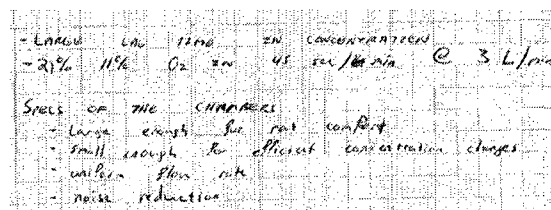 - LARGE LAG TIME IN CONCENTRATION
- 21% 11% O2 IN 45 sec / min @ 3 L/min
SPECS OF THE CHAMBERS
- Large enough for rat comfort
- small enough for efficient concentration changes
- uniform flow rate
- noise reduction